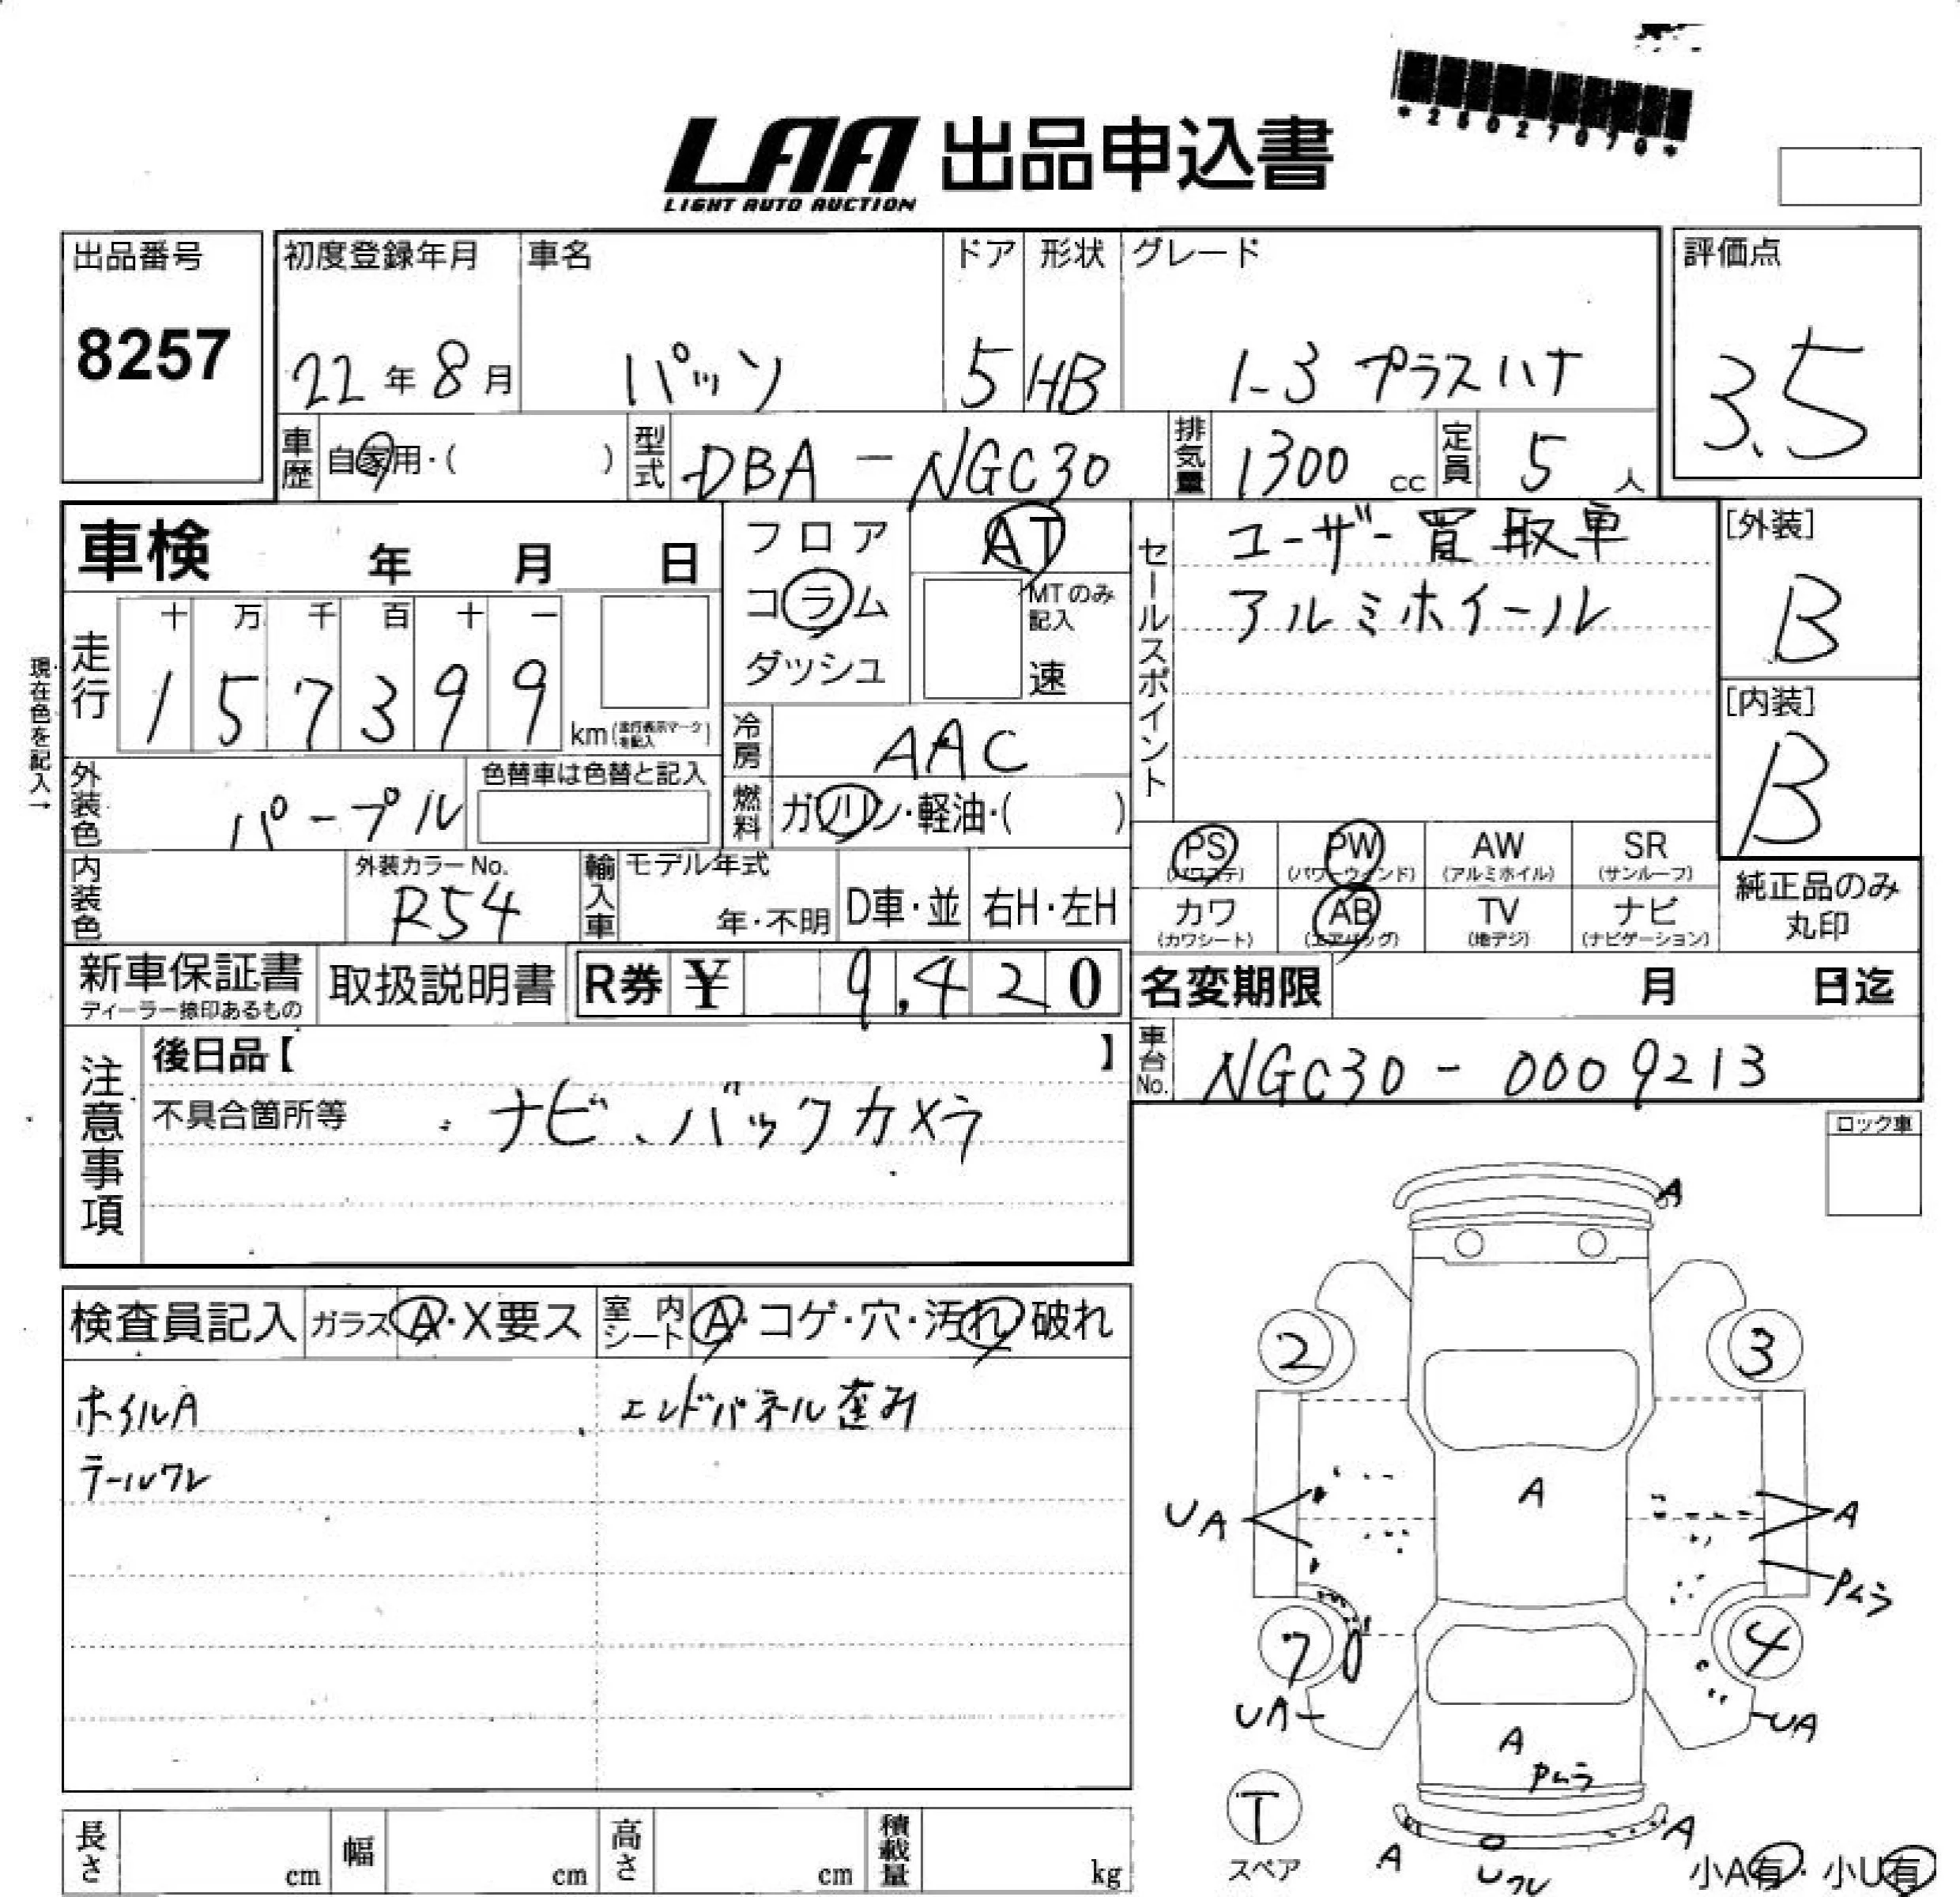 *26027070*
LAA 出品申込書
LIGHT AUTO AUCTION
出品番号
8257
初度登録年月
22年8月
車名
パッソ
ドア
5
形状
HB
グレード
1-3 プラスハナ
評価点
3.5
車歴
自家用・( )
型式
DBA-NGC30
排気量
1300cc
定員
5人
車検 年 月 日
フロア
コラム
ダッシュ
AT
MTのみ
記入
速
セールスポイント
ユーザー買取車
アルミホイール
[外装]
B
[内装]
B
現在色を記入→
走行
十 万 千 百 十 一
1 5 7 3 9 9
km(走行表示マークを記入)
冷房
AAC
外装色
パープル
色替車は色替と記入
燃料
ガソリン・軽油・( )
PS
(パワステ)
PW
(パワーウインド)
AW
(アルミホイル)
SR
(サンルーフ)
カワ
(カワシート)
AB
(エアバッグ)
TV
(地デジ)
ナビ
(ナビゲーション)
純正品のみ
丸印
内装色
外装カラーNo.
R54
輸入車
モデル年式
年・不明
D車・並
右H・左H
新車保証書
ディーラー捺印あるもの
取扱説明書
R券 ¥ 9,420
名変期限 月 日迄
注意事項
後日品【 】
不具合箇所等
ナビ、バックカメラ
車台No.
NGC30-0009213
ロック車
検査員記入
ガラス A・X要ス
室内シート A・コゲ・穴・汚れ・破れ
ホイルA
エンドパネル歪み
テールワレ
A
2
3
A
UA
A
Pムラ
7
4
UA
UA
A
Pムラ
T
スペア
A
A
Uワレ
小A有・小U有
長さ cm
幅 cm
高さ cm
積載量 kg